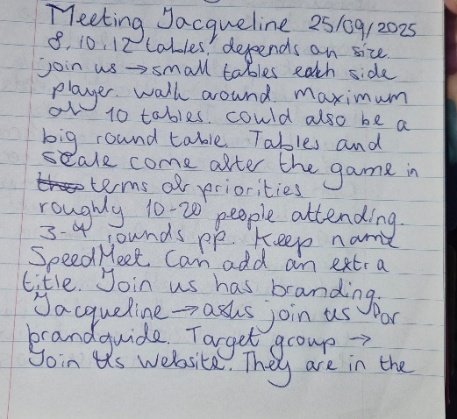 Meeting Jacqueline 25/09/2025
8, 10, 12 tables, depends on size
join us → small tables each side
player walk around maximum
of 10 tables. could also be a
big round table. Tables and
scale come after the game in
terms of priorities
roughly 10-20 people attending.
3-4 rounds pp. Keep name
SpeedMeet can add an extra
title. Join us has branding.
Jacqueline → asks join us for
brandguide. Target group →
Join Us website. They are in the